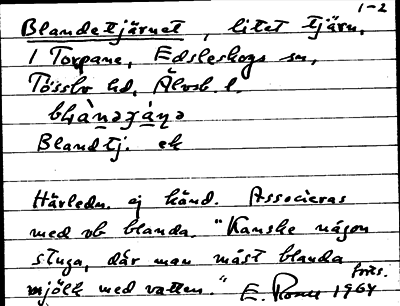 1-2
Blandetjärnet, litet tjärn,
i Torpane, Edsleskogs sn,
Tössbo hd, Älvsb. l.
Blandtj. ek
Härledn. ej känd. Associeras
med vb blanda. "Kanske någon
stuga, där man måst blanda
mjölk med vatten." E. 1964
forts.